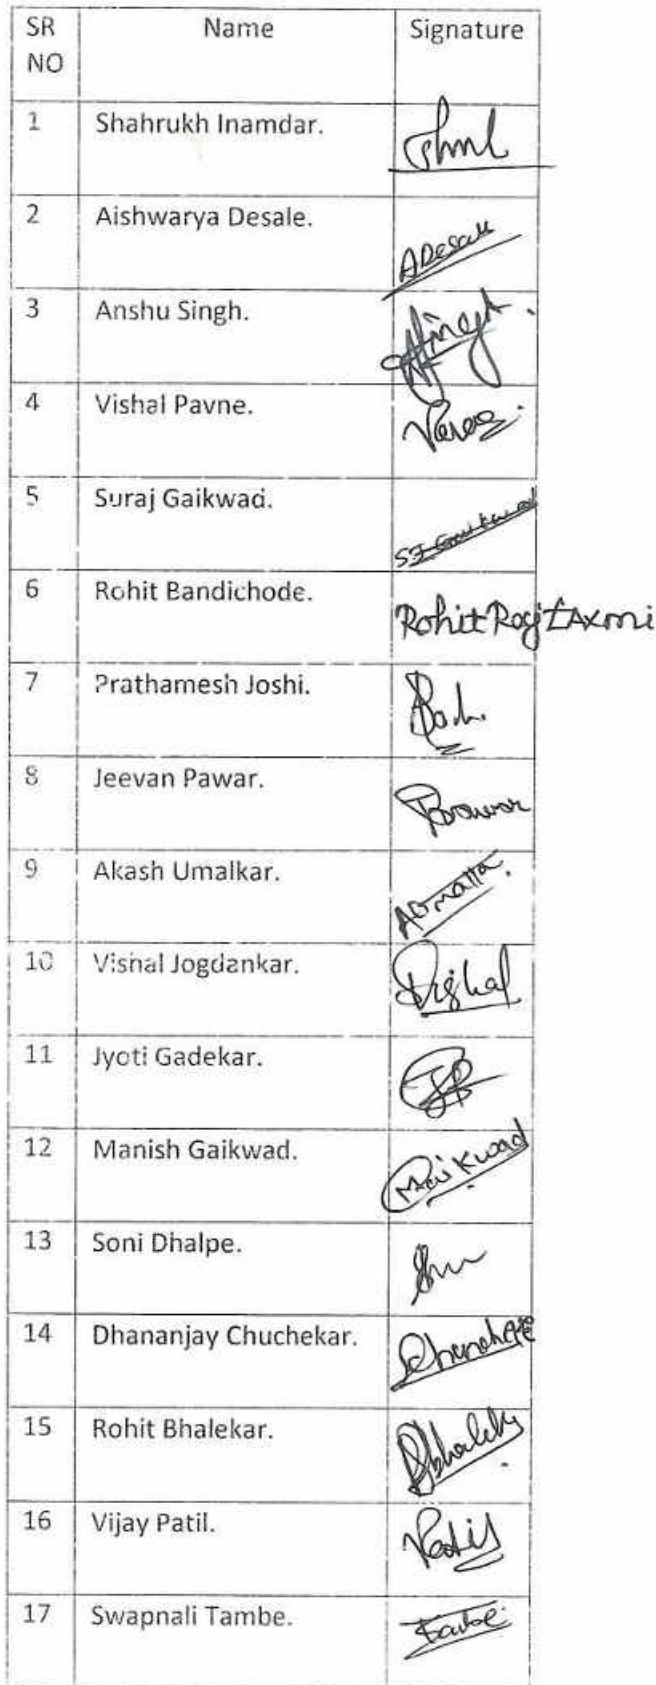 SR NO Name Signature
1 Shahrukh Inamdar.
2 Aishwarya Desale. ADesale
3 Anshu Singh.
4 Vishal Pavne.
5 Suraj Gaikwad. Gaikwad
6 Rohit Bandichode. Rohit
7 Prathamesh Joshi.
8 Jeevan Pawar. Pawar
9 Akash Umalkar.
10 Vishal Jogdankar. Vishal
11 Jyoti Gadekar.
12 Manish Gaikwad.
13 Soni Dhalpe.
14 Dhananjay Chuchekar.
15 Rohit Bhalekar.
16 Vijay Patil. Patil
17 Swapnali Tambe.